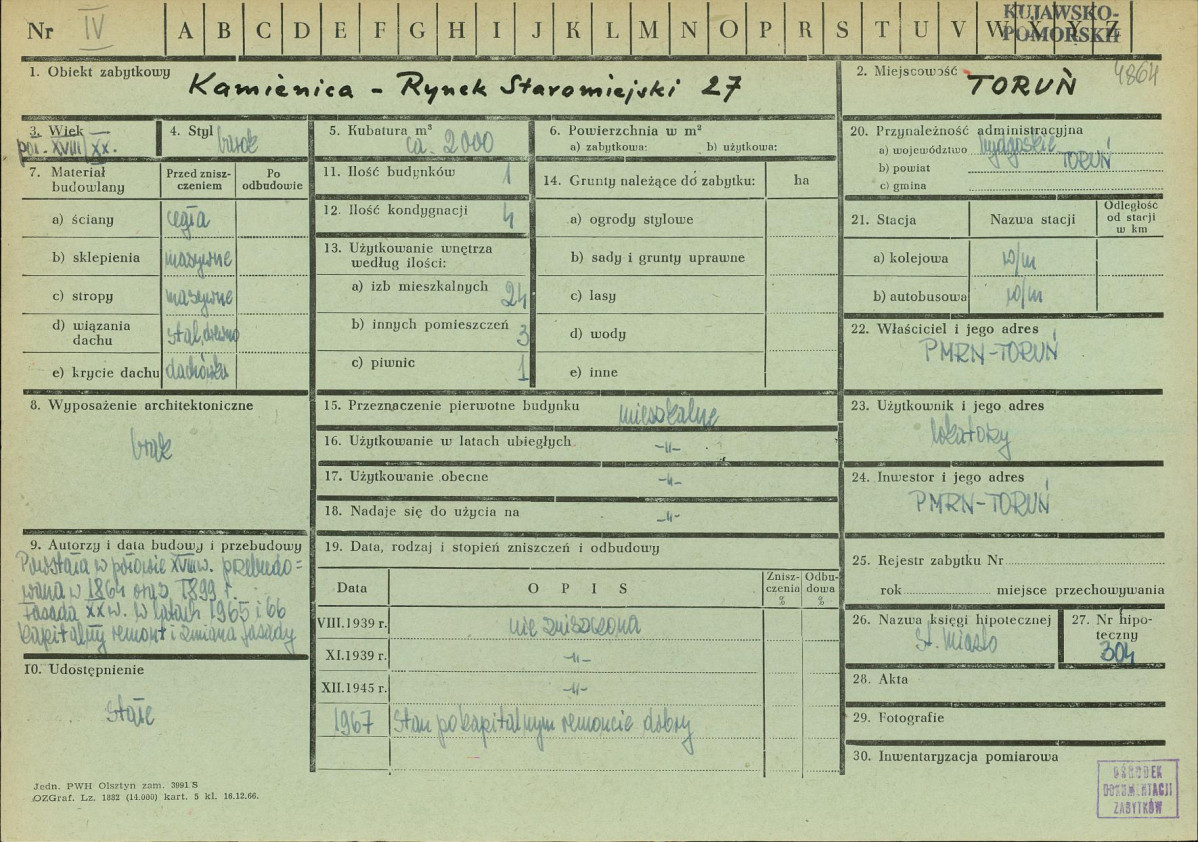 Nr IV A B C D E F G H I J K L M N O P R S T U V W X Y Z
KUJAWSKO-
POMORSKIE
1. Obiekt zabytkowy Kamienica – Rynek Staromiejski 27
2. Miejscowość TORUŃ 4864
3. Wiek
poł. XVIII/XX.
4. Styl brak
5. Kubatura m³ ca. 2000
6. Powierzchnia w m²
a) zabytkowa: b) użytkowa:
7. Materiał budowlany
Przed znisz-
czeniem
Po
odbudowie
a) ściany cegła
b) sklepienia masywne
c) stropy masywne
d) wiązania
dachu stal, drewno
e) krycie dachu dachówka
8. Wyposażenie architektoniczne
brak
9. Autorzy i data budowy i przebudowy
Powstała w połowie XVIII w. przebudo=
wana w 1864 oraz 1899 r.
Fasada XX w. w latach 1965 i 66
kapitalny remont i zmiana fasady
10. Udostępnienie
stałe
11. Ilość budynków 1
12. Ilość kondygnacji 4
13. Użytkowanie wnętrza
według ilości:
a) izb mieszkalnych 24
b) innych pomieszczeń 3
c) piwnic 1
14. Grunty należące do zabytku: ha
a) ogrody stylowe
b) sady i grunty uprawne
c) lasy
d) wody
e) inne
15. Przeznaczenie pierwotne budynku mieszkalne
16. Użytkowanie w latach ubiegłych -"-
17. Użytkowanie obecne -"-
18. Nadaje się do użycia na -"-
19. Data, rodzaj i stopień zniszczeń i odbudowy
Data O P I S
Znisz-
czenia
%
Odbu-
dowa
%
VIII.1939 r. nie zniszczona
XI.1939 r. -"-
XII.1945 r. -"-
1967 Stan po kapitalnym remoncie dobry
20. Przynależność administracyjna
a) województwo bydgoskie
b) powiat TORUŃ
c) gmina
21. Stacja Nazwa stacji
Odległość
od stacji
w km
a) kolejowa w/m
b) autobusowa w/m
22. Właściciel i jego adres
PMRN-TORUŃ
23. Użytkownik i jego adres
lokatorzy
24. Inwestor i jego adres
PMRN-TORUŃ
25. Rejestr zabytku Nr
rok miejsce przechowywania
26. Nazwa księgi hipotecznej
St. Miasto
27. Nr hipo-
teczny
304
28. Akta
29. Fotografie
30. Inwentaryzacja pomiarowa
OŚRODEK
DOKUMENTACJI
ZABYTKÓW
Jedn. PWH Olsztyn zam. 3991 S
OZGraf. Lz. 1882 (14.000) kart. 5 kl. 16.12.66.